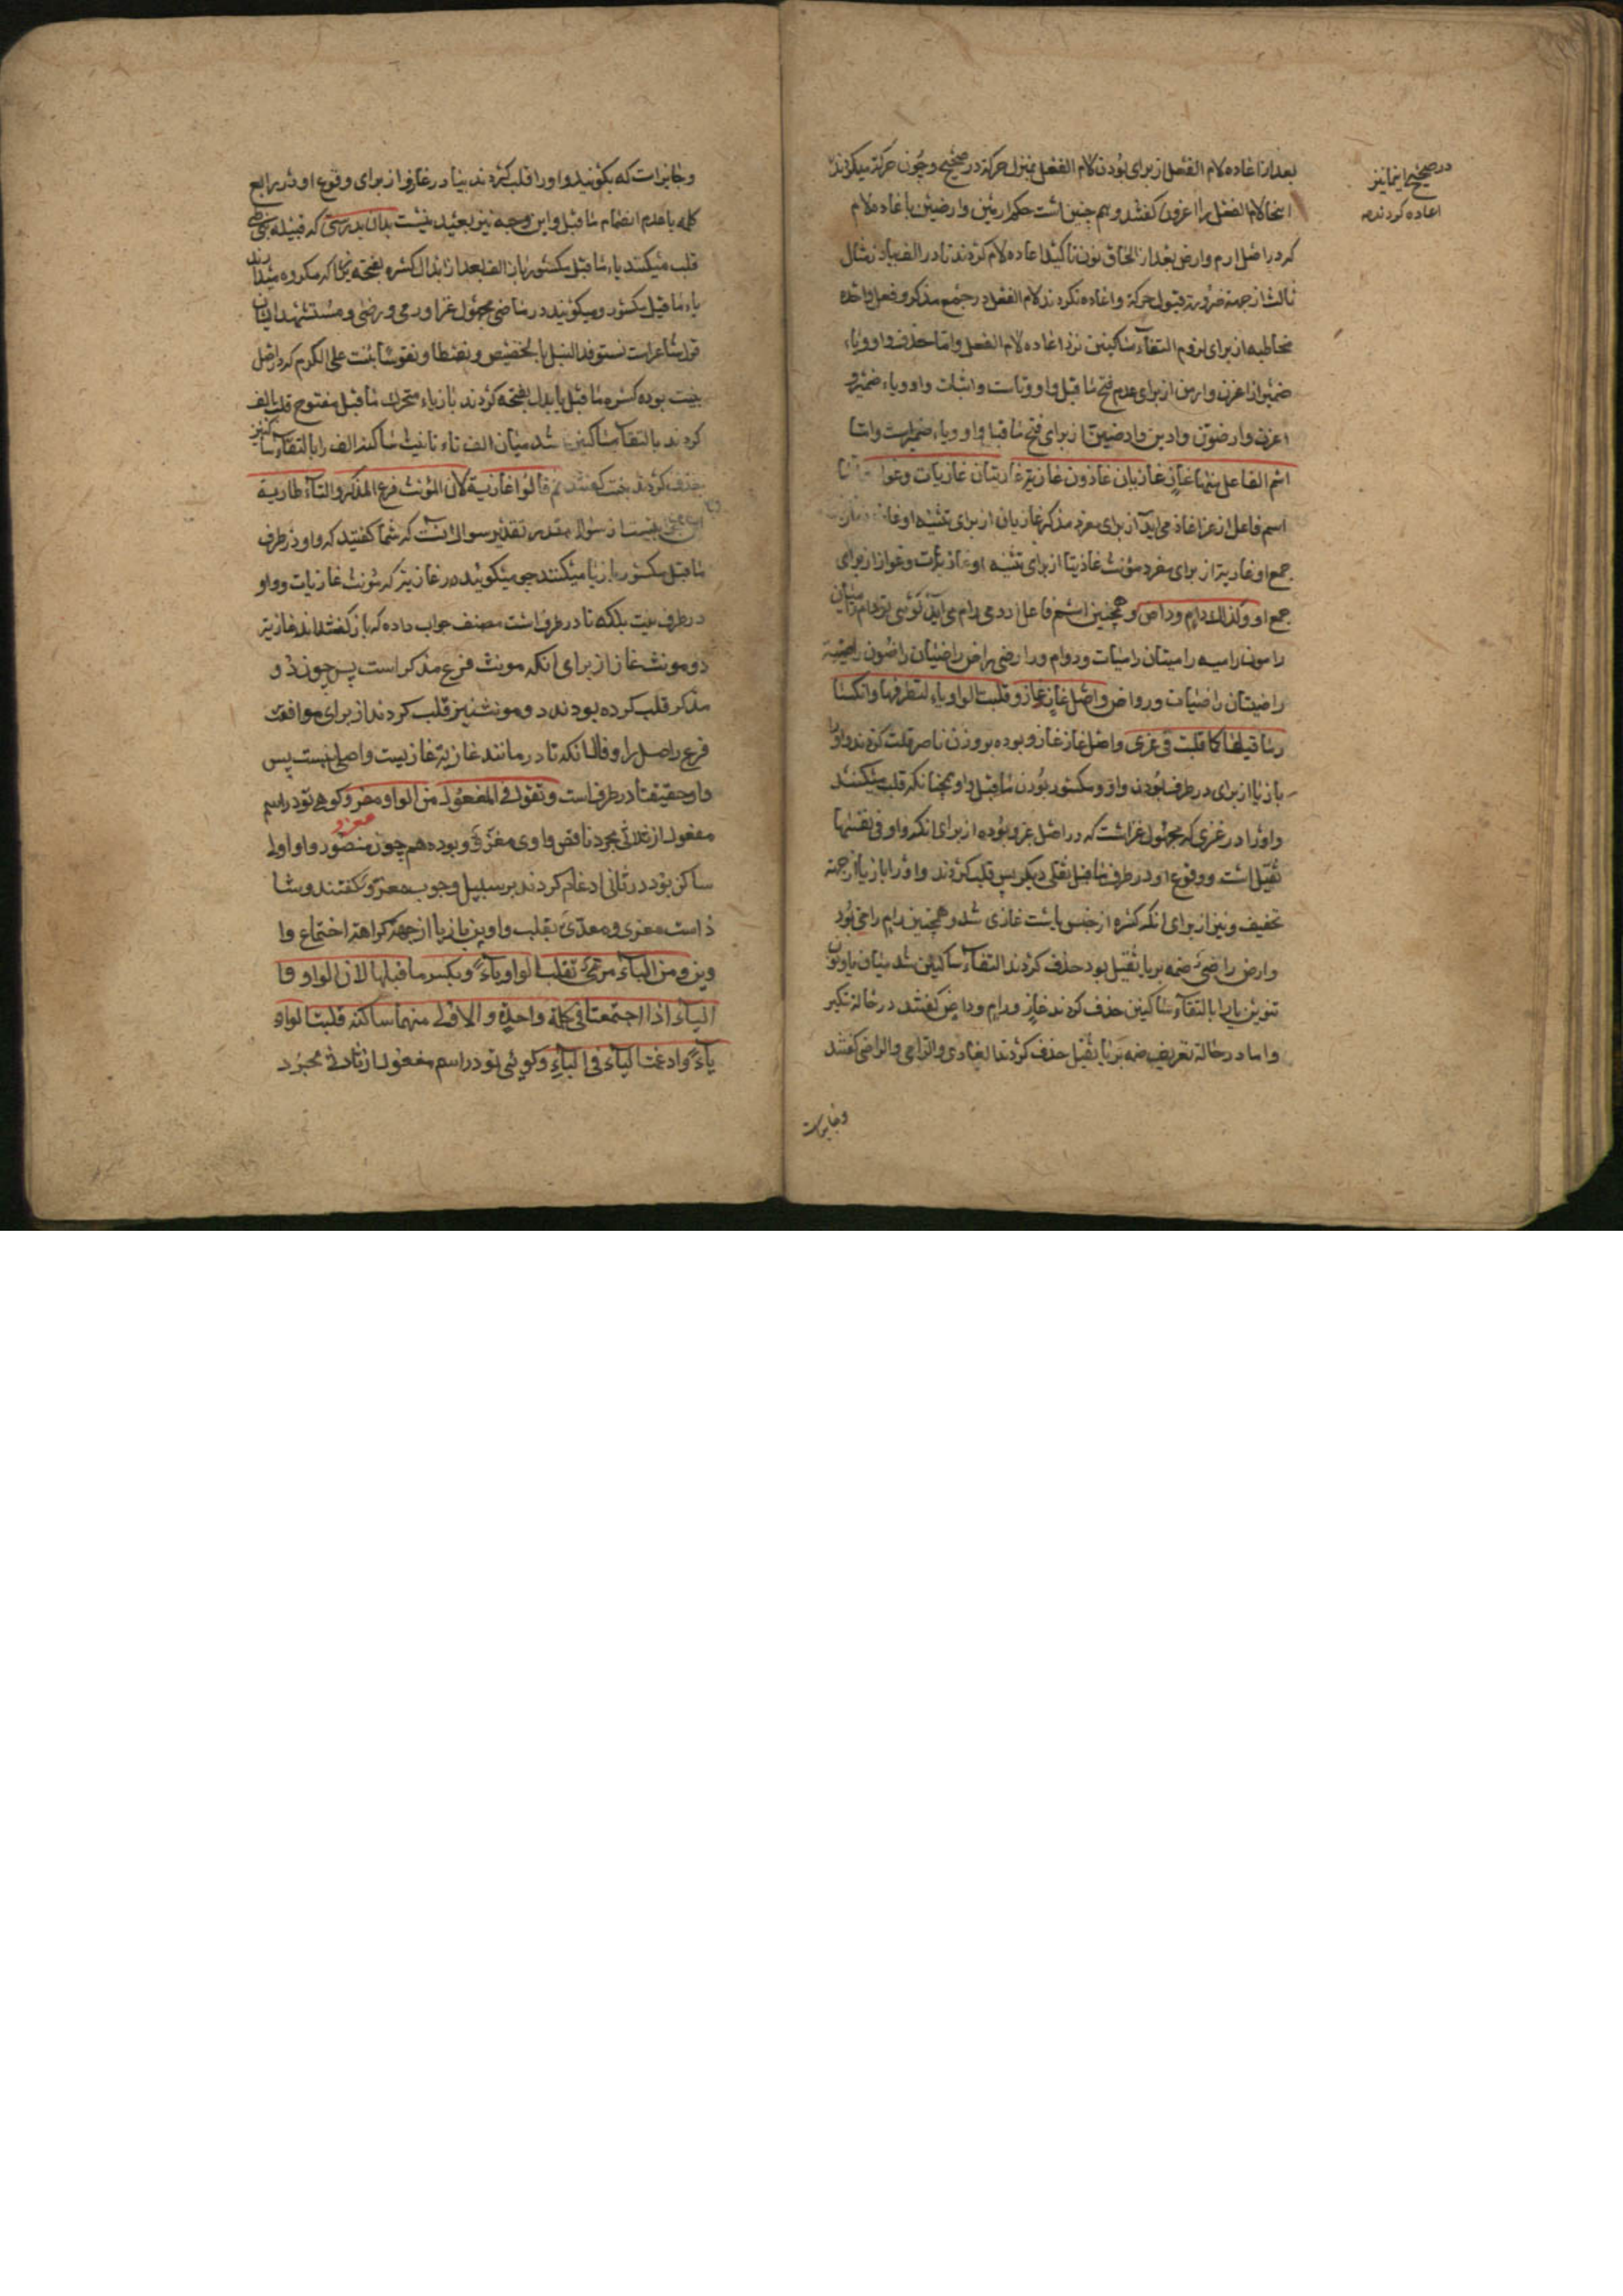 بعد از اعاده لام الفعل از برای بودن لام الفعل بمنزل حرکة در صحیح و چون حرکة میکردند
در صحیح اینجا نیز
اعاده کردند
اینجا لام الفعل را اغزون گفتند و هم چنین است حکم ارمین و ارضین باعاده لام
که در اصل ارم و ارض بعد از الحاق نون تاکید اعاده لام کردند تا در الف یا در مثال
ثالث از جهة ضرورة قبول حرکة و اعاده نکردند لام الفعل در جمع مذکر و فعل واحده
مخاطبه از برای لزوم التقاء ساکنین نزد اعاده لام الفعل و اما حذف واو و یاء
ضمیر از اغزن و ارمن از برای عدم فتح ماقبل واو و یاست و اثبات واو و یاء ضمیر و
اغزن و ارضون و ارضین از برای فتح ماقبل واو و یاء ضمیر است و اما
اسم الفاعل منها غاز غازیان غازون غازیة غازیتان غازیات و غواز
اسم فاعل از غزا غاز می آید از برای مفرد مذکر غازیان از برای تثنیه او
جمع او غازیة از برای مفرد مؤنث غازیتان از برای تثنیه او غازیات و غواز از برای
جمع او و کذلک رام و راض و همچنین اسم فاعل از رمی رام می آید گوئی تو رام رامیان
رامون رامیه رامیتان رامیات و روام و از رضی راض راضیان راضون راضیة
راضیتان راضیات و رواض و اصل غاز غازو قلبت الواو یاء لتطرفها و انکسا
ر ماقبلها کما قلبت فی غزی و اصل غاز غازو بوده بر وزن ناصر قلب کردند واو را
با یا از برای در طرف بودن واو و مکسور بودن ماقبل واو همچنانکه قلب میکنند
واو را در غزی که مجهول غزاست که در اصل غزو بوده از برای انکه واو فی نفسها
ثقیل است و وقوع او در طرف ثقلی دیکر پس قلب کردند واو را با یا از جهة
تخفیف و نیز از برای انکه کسره از جنس یاست غازی شد و همچنین رام رامی بود
و راض راضی ضمه بر یا ثقیل بود حذف کردند التقاء ساکنین شد میان یا و نون
تنوین یا را بالتقاء ساکنین حذف کردند غاز و رام و راض گفتند در حالة تنکیر
و اما در حالة تعریف ضمه بر یا ثقیل حذف کردند الغازی و الرامی و الراضی گفتند
و جایز است
و جایز است که بگویند واو را قلب کردند بیا در غازو از برای وقوع او در رابع
کلمه با عدم انضمام ماقبل و این وجه نیز بعید نیست بدان بدرستی که قبیله بنی طی
قلب میکنند یاء ماقبل مکسور را با الف بعد از ابدال کسره بفتحه زیرا که مکروه میدارند
یاء ماقبل مکسور و میگویند در ماضی مجهول غزا و رمی و رضی و مستشهد ایشان
قول شاعر است نستوقد النبل بالحضیض و نصطاد نفوسا بنت علی الکرم که در اصل
بنیت بوده کسره ماقبل یا بدل بفتحه کردند یا یاء متحرک ماقبل مفتوح قلب بالف
کردند بالتقاء ساکنین شد میان الف تاء تانیث ساکنه الف را بالتقاء ساکنین
حذف کردند بنت گفتند ثم قالوا غازیة لان المؤنث فرع المذکر و التاء طاریة
این سوال مقدر تقدیر سوال انست که شما گفتید که واو در طرف
ماقبل مکسور را یا میکنند چه میگوئید در غازیة که مؤنث غازیات و واو
در طرف نیست بلکه تا در طرف است مصنف جواب داده که باز گفته‌اند غازیة
دو مونث غاز از برای انکه مونث فرع مذکر است پس چون در
مذکر قلب کرده بودند در مونث نیز قلب کردند از برای موافقت
فرع اصل را و قال انکه تا در مانند غازیة غازیست و اصلی نیست پس
واو حقیقتا در طرف است و تقول فی المفعول من الواو مغزو گوئی تو در اسم
مغزو
مفعول از ثلاثی مجرد ناقص واوی مغزو و بوده هم چون منصور واو اول
ساکن بود در ثانی ادغام کردند بر سبیل وجوب مغزو گفتند و شا
ذ است مغزی و معدی بقلب واوین با یا از جهة کراهة اجتماع وا
وین و من الیاء مرمی تقلب الواو یاء و یکسر ماقبلها لان الواو و
الیاء اذا اجتمعتا فی کلمة واحدة و الاولی منهما ساکنة قلبت الواو
یاء و ادغمت الیاء فی الیاء و گوئی تو در اسم مفعول از ثلاثی مجرد